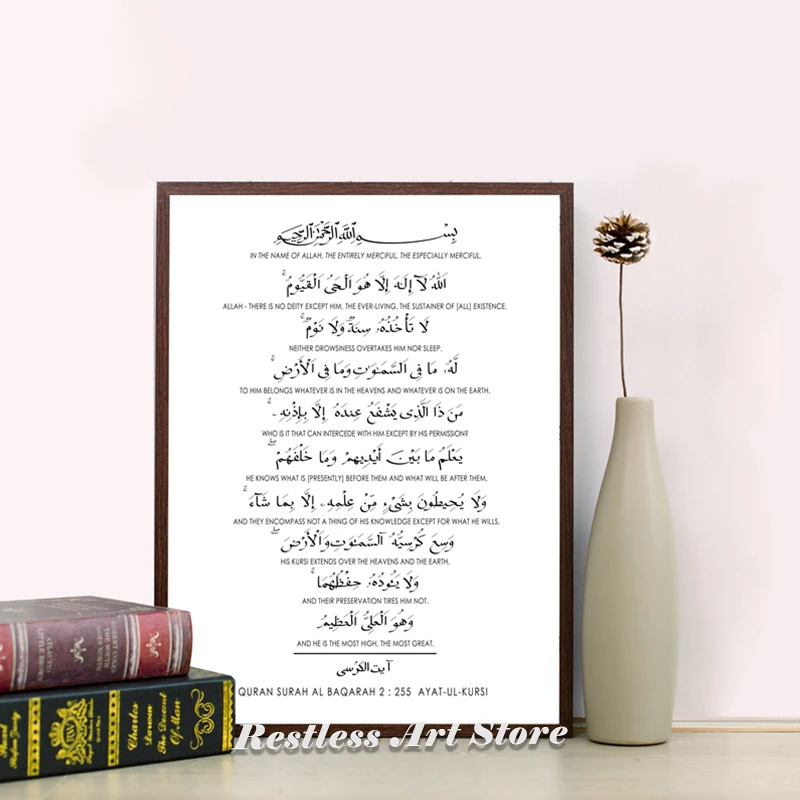 بِسْمِ ٱللَّهِ ٱلرَّحْمَٰنِ ٱلرَّحِيمِ
IN THE NAME OF ALLAH, THE ENTIRELY MERCIFUL, THE ESPECIALLY MERCIFUL.
ٱللَّهُ لَآ إِلَٰهَ إِلَّا هُوَ ٱلْحَىُّ ٱلْقَيُّومُ ۚ
ALLAH - THERE IS NO DEITY EXCEPT HIM, THE EVER-LIVING, THE SUSTAINER OF [ALL] EXISTENCE.
لَا تَأْخُذُهُۥ سِنَةٌ وَلَا نَوْمٌ ۚ
NEITHER DROWSINESS OVERTAKES HIM NOR SLEEP.
لَّهُۥ مَا فِى ٱلسَّمَٰوَٰتِ وَمَا فِى ٱلْأَرْضِ ۗ
TO HIM BELONGS WHATEVER IS IN THE HEAVENS AND WHATEVER IS ON THE EARTH.
مَن ذَا ٱلَّذِى يَشْفَعُ عِندَهُۥٓ إِلَّا بِإِذْنِهِۦ ۚ
WHO IS IT THAT CAN INTERCEDE WITH HIM EXCEPT BY HIS PERMISSION?
يَعْلَمُ مَا بَيْنَ أَيْدِيهِمْ وَمَا خَلْفَهُمْ ۖ
HE KNOWS WHAT IS [PRESENTLY] BEFORE THEM AND WHAT WILL BE AFTER THEM,
وَلَا يُحِيطُونَ بِشَىْءٍ مِّنْ عِلْمِهِۦٓ إِلَّا بِمَا شَآءَ ۚ
AND THEY ENCOMPASS NOT A THING OF HIS KNOWLEDGE EXCEPT FOR WHAT HE WILLS.
وَسِعَ كُرْسِيُّهُ ٱلسَّمَٰوَٰتِ وَٱلْأَرْضَ ۖ
HIS KURSI EXTENDS OVER THE HEAVENS AND THE EARTH,
وَلَا يَـُٔودُهُۥ حِفْظُهُمَا ۚ
AND THEIR PRESERVATION TIRES HIM NOT.
وَهُوَ ٱلْعَلِىُّ ٱلْعَظِيمُ
AND HE IS THE MOST HIGH, THE MOST GREAT.
آيت الكرسى
QURAN SURAH AL BAQARAH 2 : 255 AYAT-UL-KURSI
Charles
Darwon
The Descent
Of Man
Restless Art Store